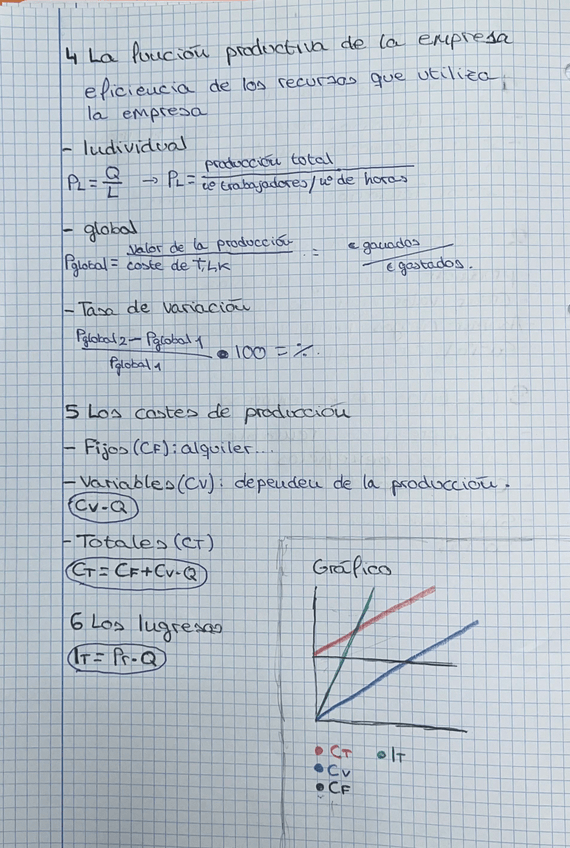 4 La función productiva de la empresa
eficiencia de los recursos que utiliza
la empresa
- Individual
PL = Q/L → PL = producción total / nº trabajadores/nº de horas
- global
Pglobal = valor de la producción / coste de T, L, K = € ganados / € gastados.
- Tasa de variación
Pglobal 2 - Pglobal 1 / Pglobal 1 • 100 = %.
5 Los costes de producción
- Fijos (CF): alquiler...
- Variables (CV): dependen de la producción.
CV·Q
- Totales (CT)
CT = CF + CV·Q
6 Los Ingresos
IT = Pr·Q
Gráfico
• CT • IT
• CV
• CF